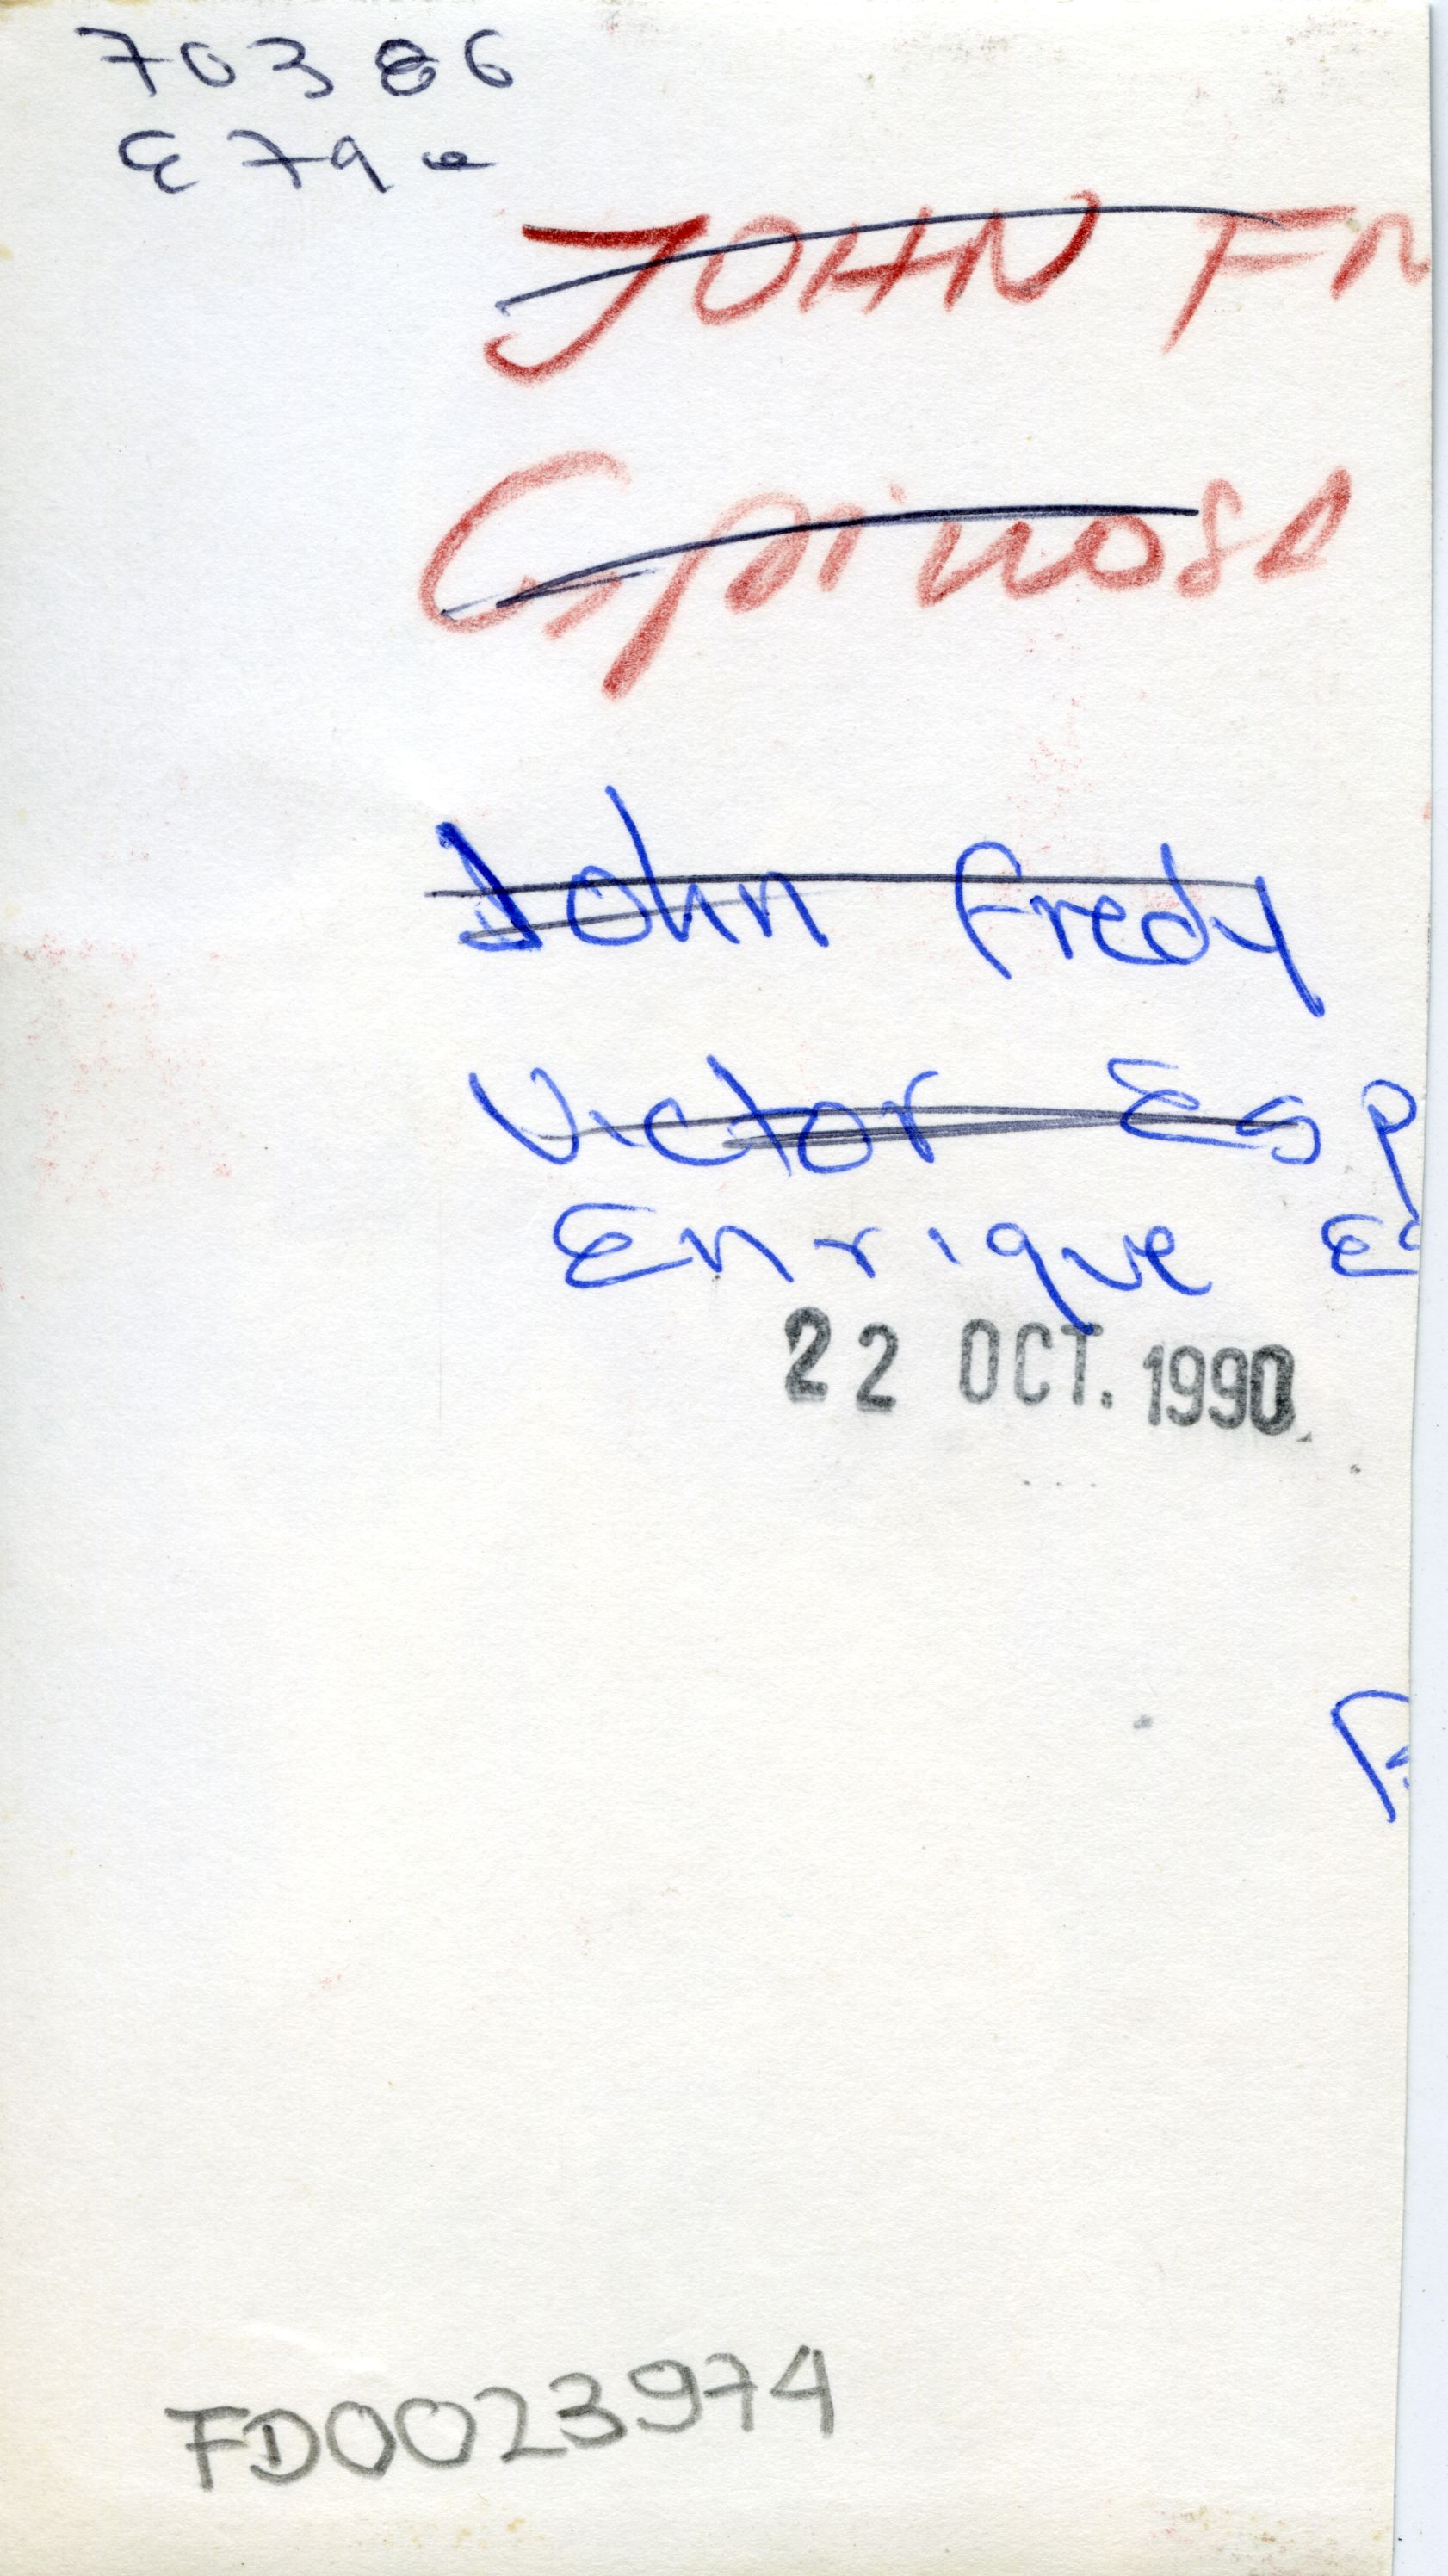 70386
E79a
JOHN FR
Espinosa
John Fredy
Victor Esp
Enrique Es
22 OCT. 1990
FD0023974